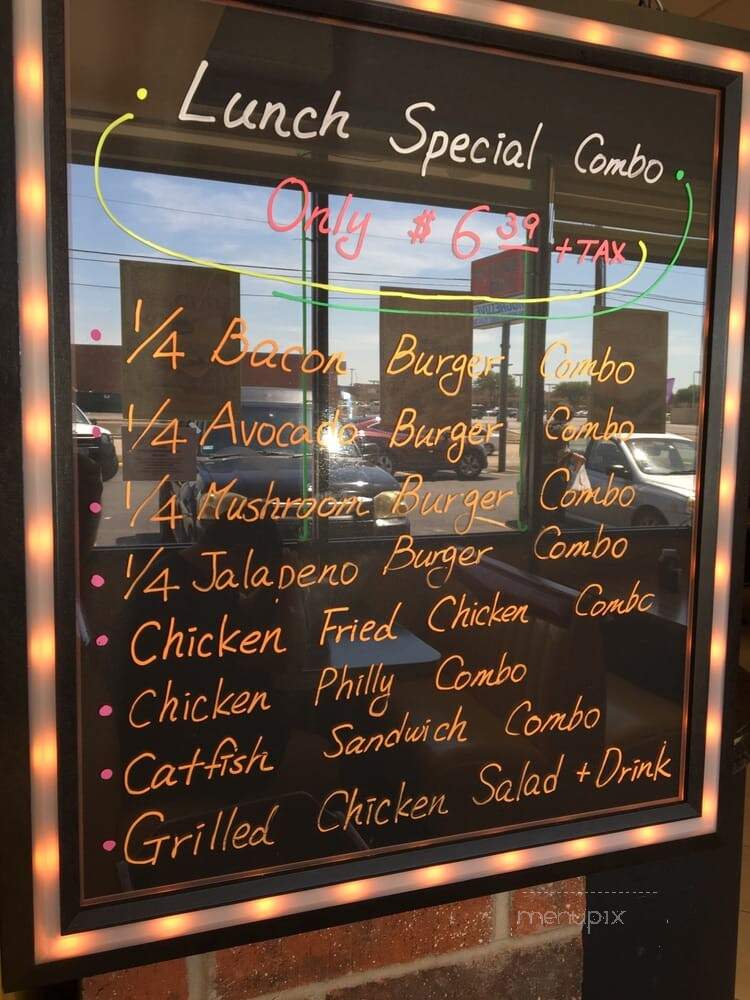 Lunch Special Combo
Only $ 6 39 + TAX
1/4 Bacon Burger Combo
1/4 Avocado Burger Combo
1/4 Mushroom Burger Combo
1/4 Jalapeno Burger Combo
Chicken Fried Chicken Combo
Chicken Philly Combo
Catfish Sandwich Combo
Grilled Chicken Salad + Drink
menupix